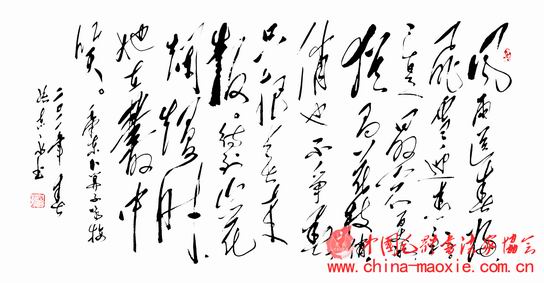 风雨送春归
飞雪迎春到
已是悬崖百丈冰
犹有花枝俏
俏也不争春
只把春来
报。待到山花
烂漫时
她在丛中
笑。
卜算子咏梅
年春
中國毛體書法家協會
www.china-maoxie.com.cn